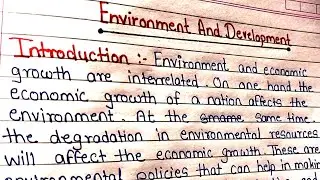 Environment And Development
Introduction :- Environment and economic
growth are interrelated. On one hand the
economic growth of a nation affects the
environment. At the same same time.
the degradation in environmental resources
will affect the economic growth. These are
environmental policies that can help in making